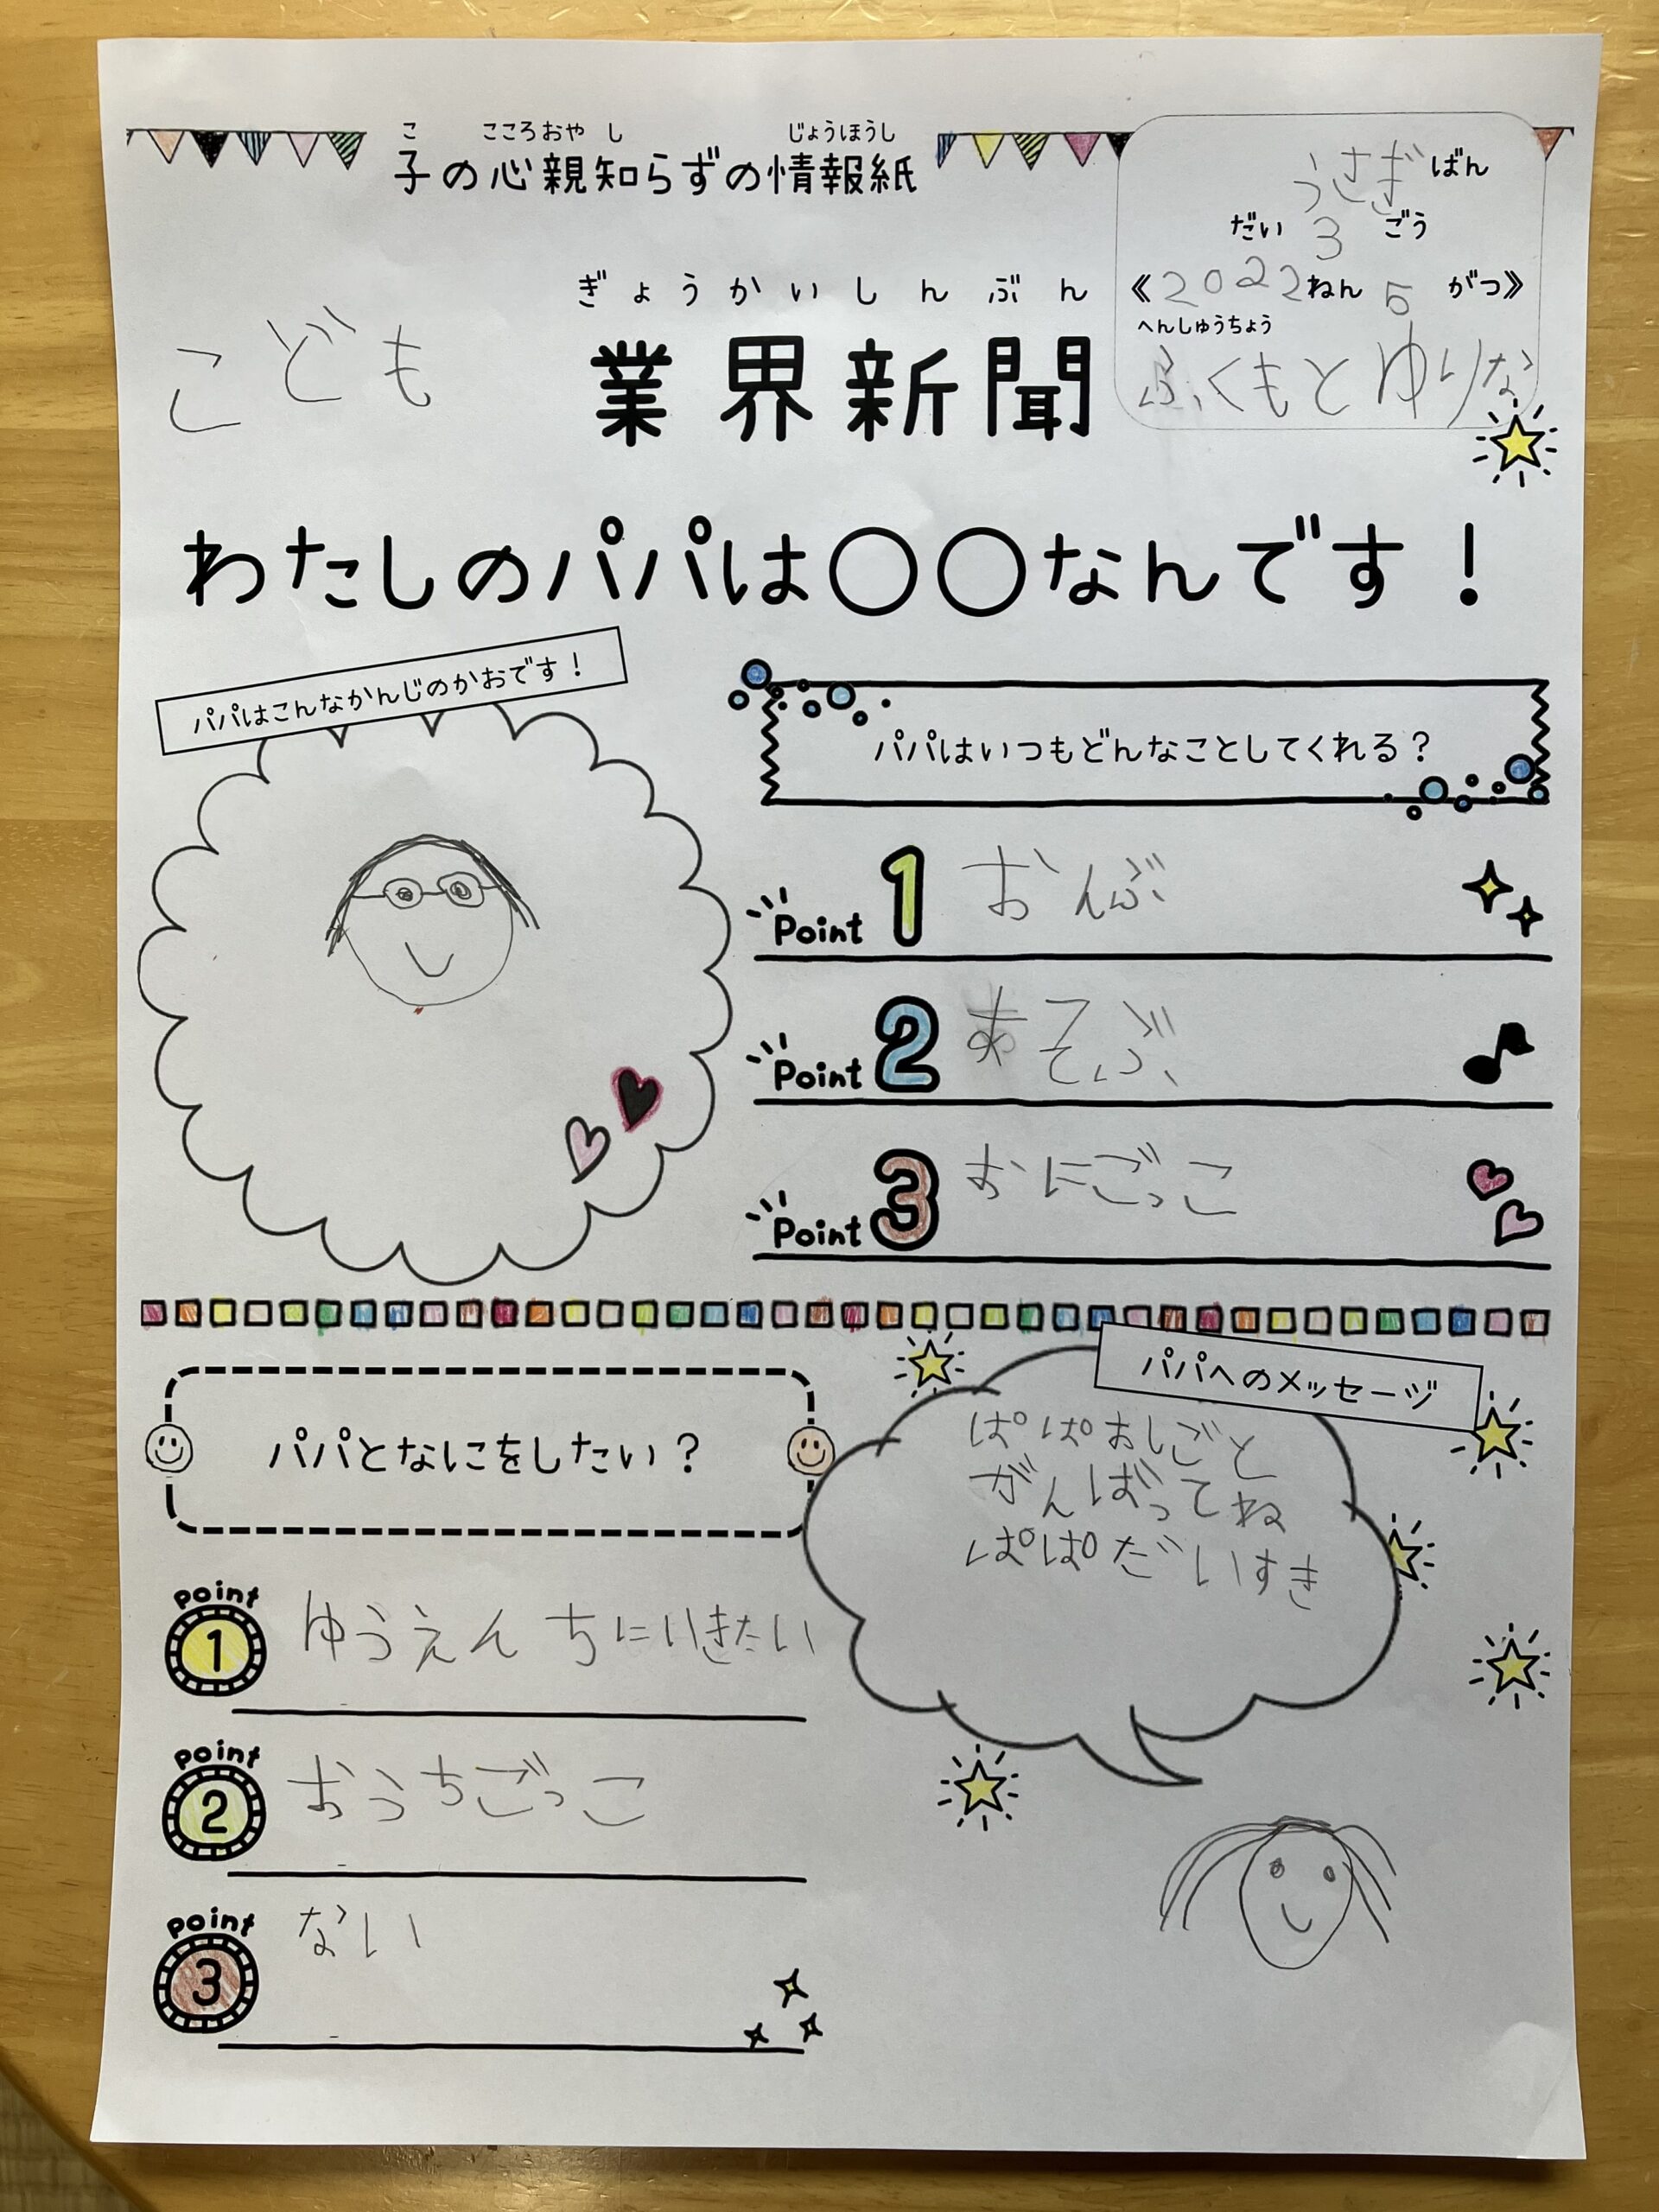 こ こころおや し じょうほうし
子の心親知らずの情報紙
うさぎばん
だい3ごう
《2022ねん5がつ》
へんしゅうちょう
ふくもとゆりな
ぎょうかいしんぶん
こども業界新聞
わたしのパパは〇〇なんです!
パパはこんなかんじのかおです!
パパはいつもどんなことしてくれる?
Point 1 おんぶ
Point 2 あそぶ
Point 3 おにごっこ
パパとなにをしたい?
point 1 ゆうえんちにいきたい
point 2 おうちごっこ
point 3 ない
パパへのメッセージ
ぱぱおしごと
がんばってね
ぱぱだいすき